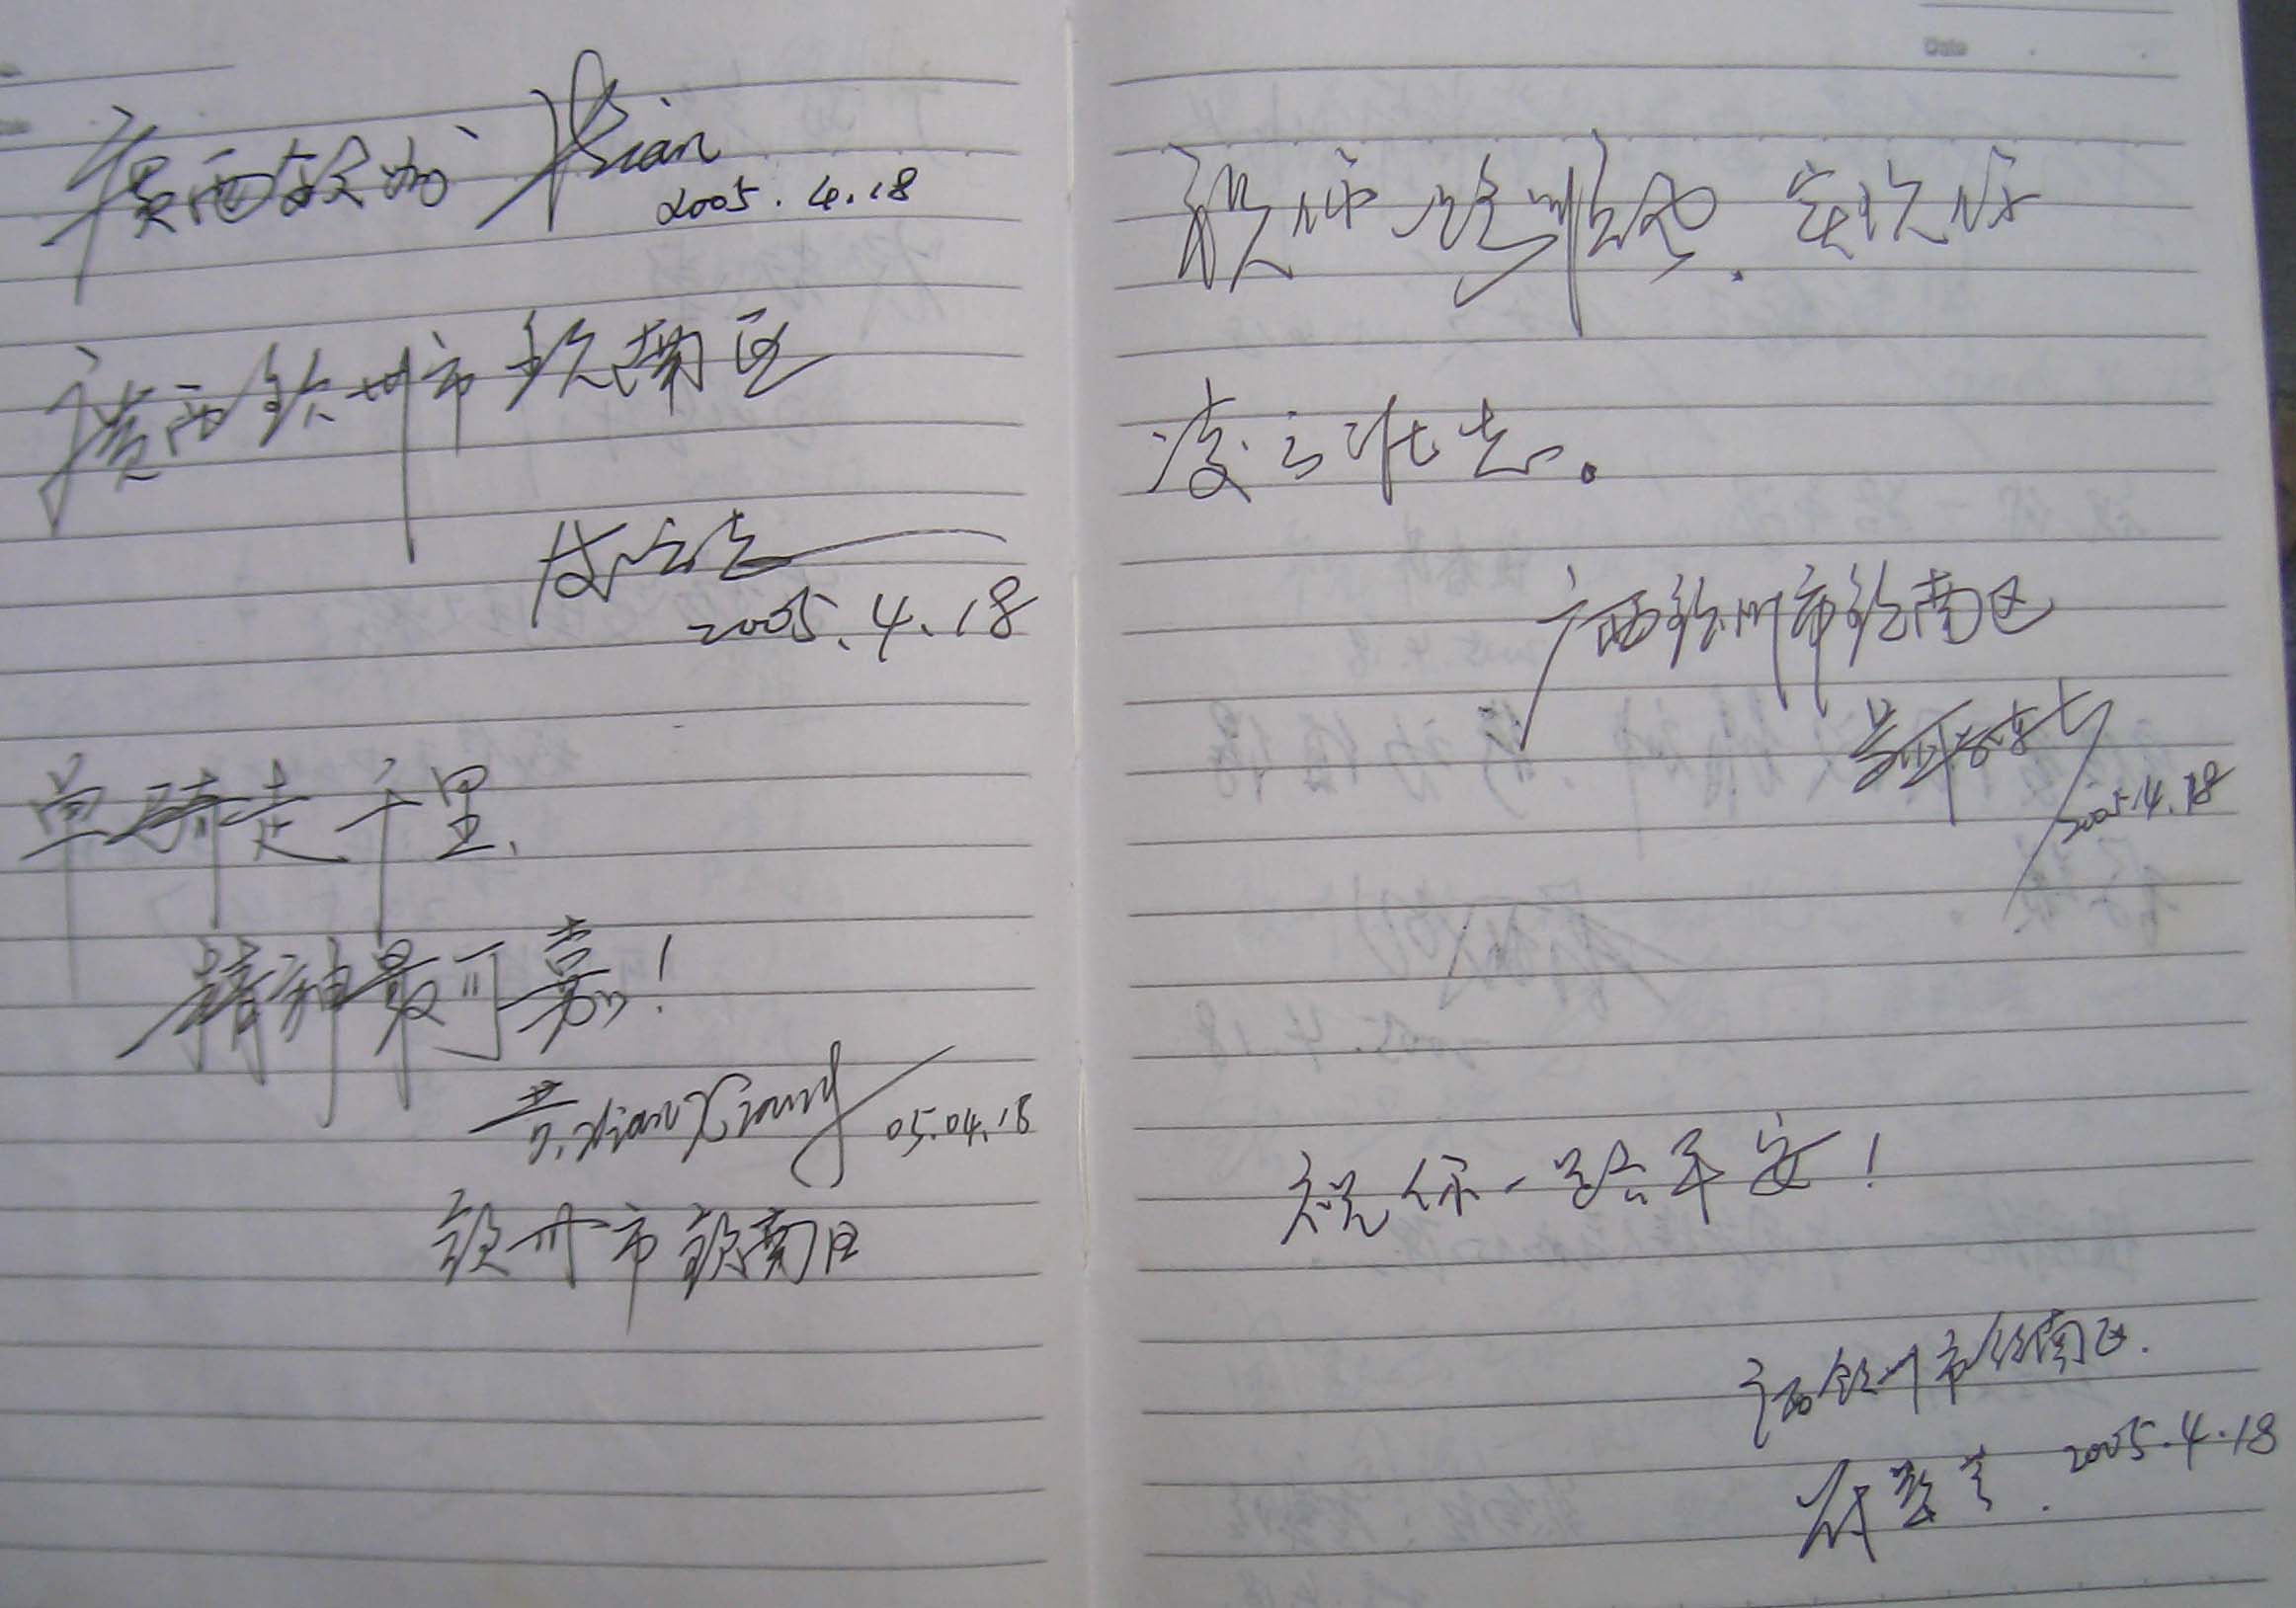 廣西钦州
2005.4.18
廣西钦州市钦南区
2005.4.18
单骑走千里,
精神最可嘉!
XianXiang 05.04.18
钦州市钦南区
祝你一路顺风. 实现你
凌云壮志。
广西钦州市钦南区
2005.4.18
祝你一路平安!
广西钦州市钦南区.
2005.4.18